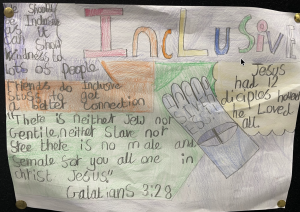 INCLUSIVE
We should
be Inclusive
as it
will Show
kindness to
lots of People
Friends do Inclusive
get
a better Connection
Jesus
had 12
diciples however
he Loved
all.
"There is neither Jew nor
Gentile, neither Slave nor
free there is no male and
female for you all one in
christ Jesus"
Galatians 3:28